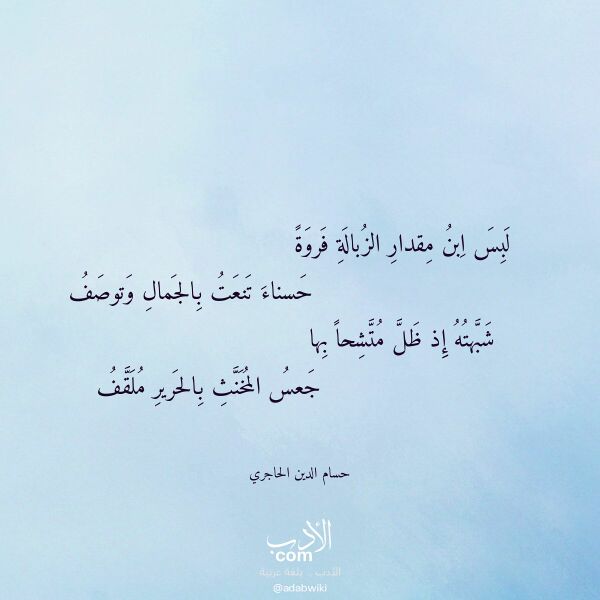 لَبِسَ اِبنُ مِقدارِ الزُبالَةِ فَروَةً
حَسناءَ تَنعَتُ بِالجَمالِ وَتوصَفُ
شَبَّهتُهُ إِذ ظَلَّ مُتَّشِحاً بِها
جَعسُ المُخَنَّثِ بِالحَريرِ مُلَقَّفُ
حسام الدين الحاجري
الأدب
com
الأدب .. بلغة عربية
@adabwiki